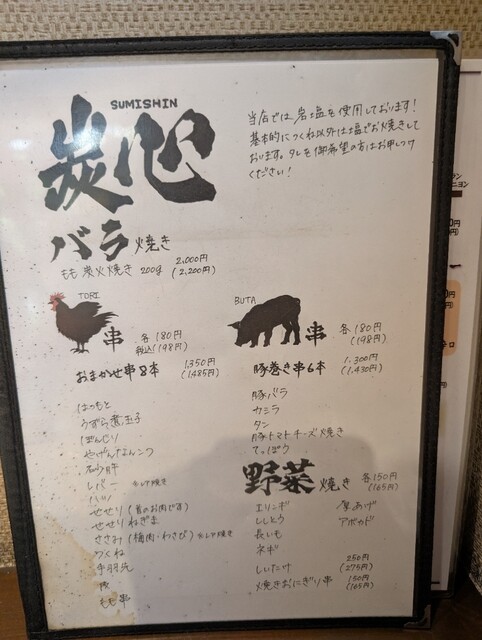 SUMISHIN
炭心
当店では、岩塩を使用しております!
基本的につくね以外は塩でお焼きして
おります。タレを御希望の方はお申しつけ
ください!
バラ焼き
もも炭火焼き 200g 2,000円
(2,200円)
TORI
串 各180円
税込(198円)
おまかせ串8本 1,350円
(1,485円)
はつもと
うずら煮玉子
ぼんじり
やげんなんこつ
砂肝
レバー ※レア焼き
ハツ
せせり(首のお肉です)
せせりねぎま
ささみ(梅肉・わさび)※レア焼き
つくね
手羽先
もも串
BUTA
串 各180円
(198円)
豚巻き串6本 1,300円
(1,430円)
豚バラ
カシラ
タン
豚トマトチーズ焼き
てっぽう
野菜焼き 各150円
(165円)
エリンギ 厚あげ
ししとう アボカド
長いも
ネギ
しいたけ 250円
(275円)
焼きおにぎり串 150円
(165円)